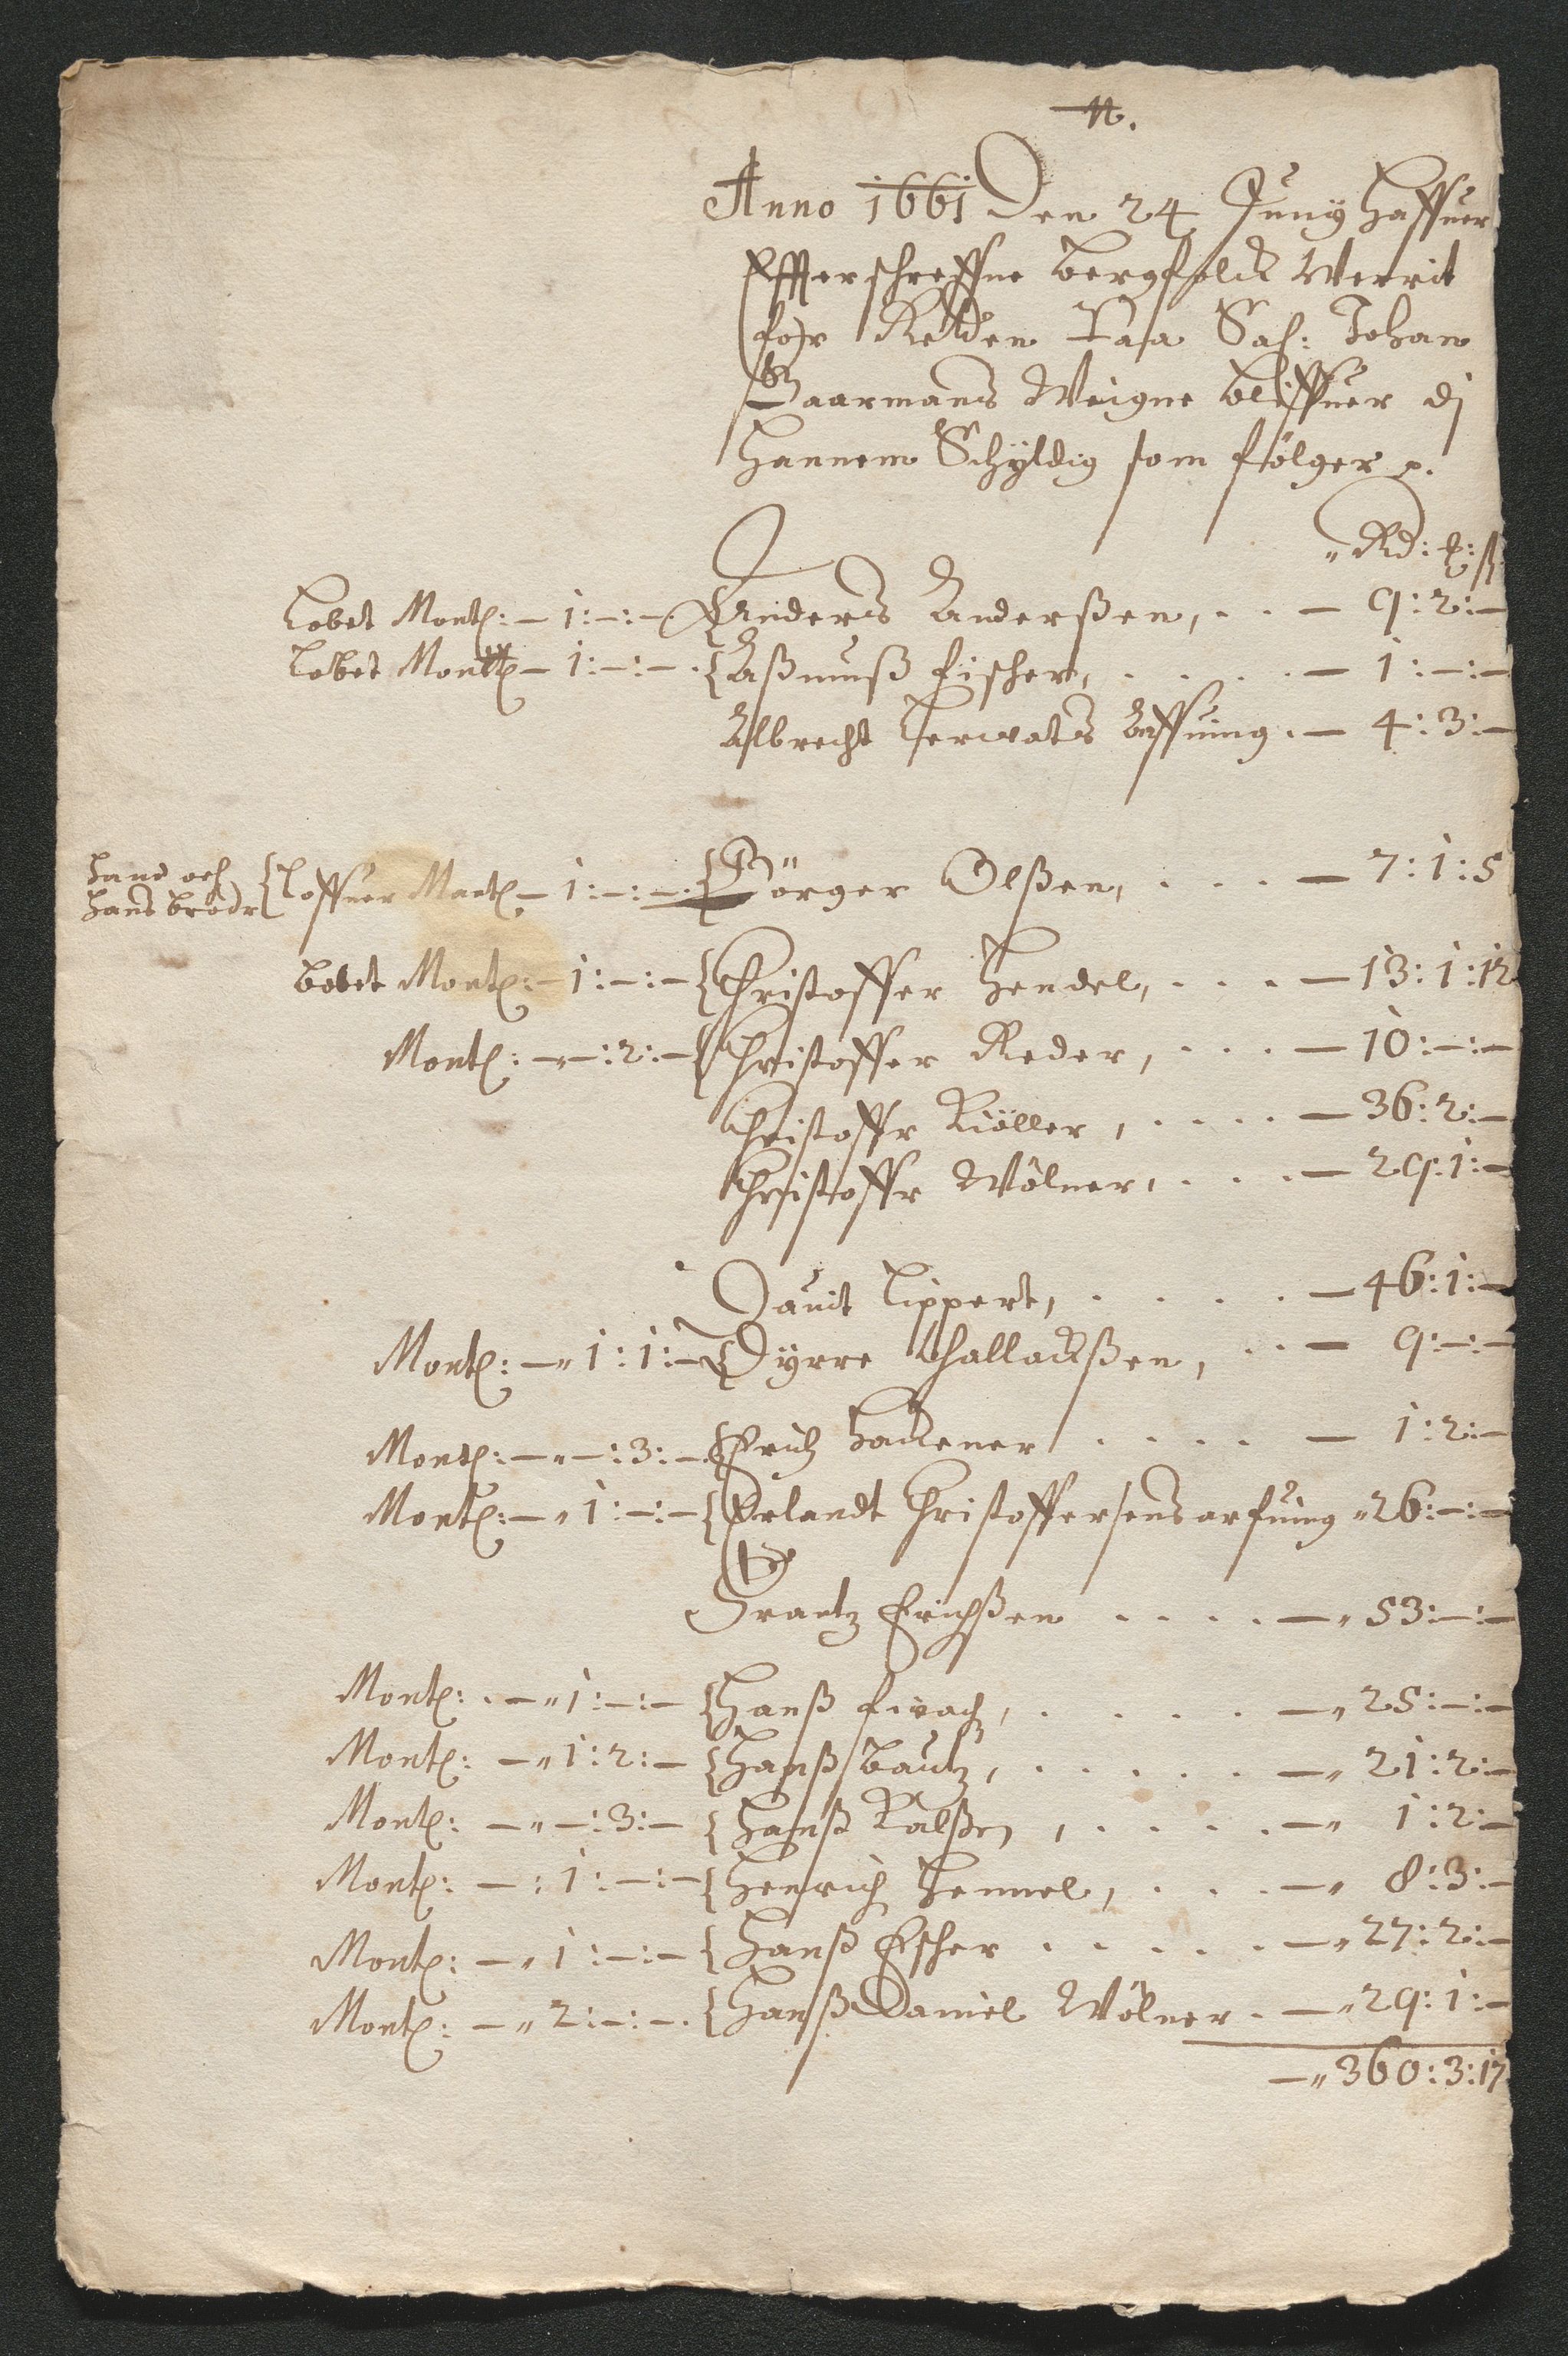 N.
Anno 1661 Den 24 Juny haffuer
Effterschreffne bergfolck Werrit
for Retten Paa Sal: Johan
Baarmans Weigne bleffuer dj
hannem Schyldig som fölger
Rd: ß
Lobet Montl: — 1:—:— Anders Anderßen, . . — 9:2:—
Lobet Montl — 1:—:— Aßmuß Fischer, . . . . — 1:—:—
Albrecht Arffuing . — 4:3:—
Hand och
hans brodr Loffuer Mantl — 1:—:— Börger Olßen, . . . — 7:1:5
Lobet Montl: — 1:—:— Christoffer Hendel, . . . — 13:1:12
Montl: —„—:2:— Christoffer Reder, . . . — 10:—:—
Christoffr Kiöller, . . . . — 36:2:—
Christoffr Wölner, . . . — 29:1:—
Dauit Lippert, . . . . — 46:1:—
Montl: —„1:1:— Dyrre Challackßen, . . — 9:—:—
Montl: —„—:3:— Erich Hackener . . . . — 1:2:—
Montl: —„1:—:— Erlandt Christoffersens arfuing „26:—:—
Frantz Erichßen . . . . —„53:—:—
Montl: . —„1:—:— Hanß . . . . . —„25:—:—
Montl: —„1:2:— Hanß Bautz, . . . . . —„21:2:—
Montl: —„—:3:— Hanß Kalßen, . . . . —„ 1:2:—
Montl: —:1:—:— Henrich Hemmel, . . . —„ 8:3:—
Montl: —„1:—:— Hanß Escher . . . . . —„27:2:—
Montl: —„2:—:— Hanß Daniel Wölner . —„29:1:—
—„360:3:17